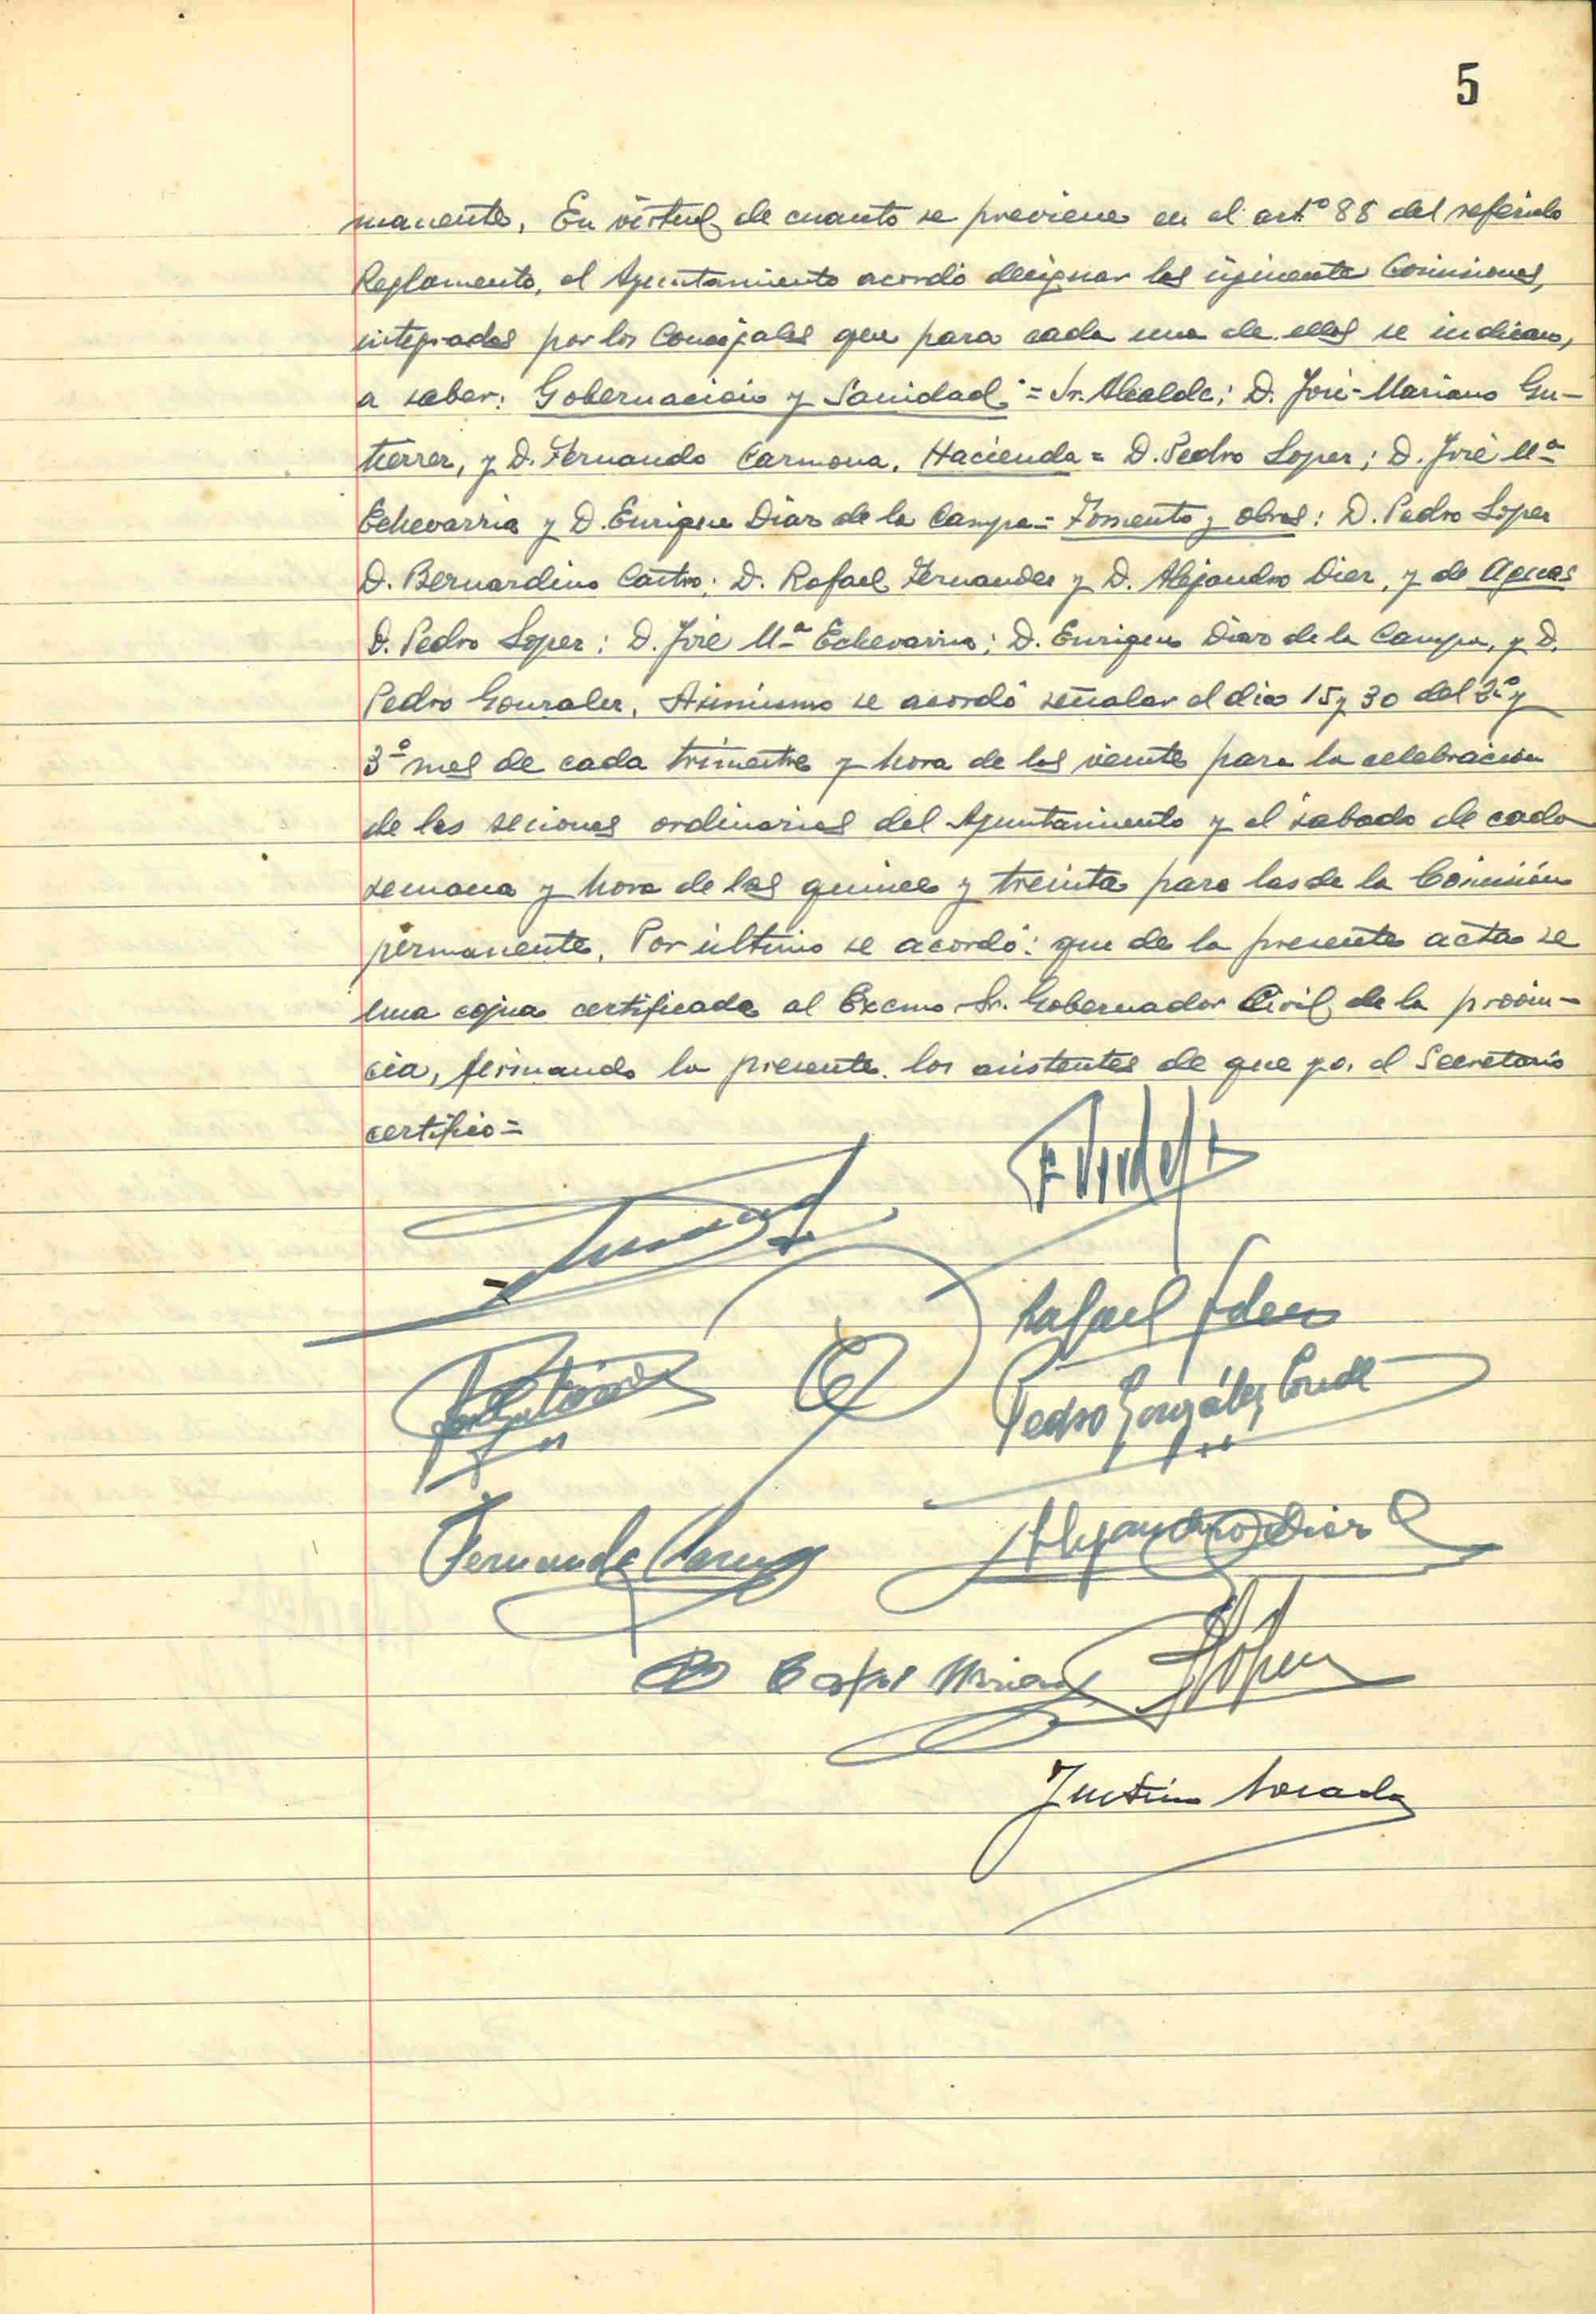 5
manente. En virtud de cuanto se previene en el artº 88 del referido
Reglamento, el Ayuntamiento acordó designar las siguientes Comisiones,
integradas por los Concejales que para cada una de ellas se indican,
a saber: Gobernación y Sanidad = Sr. Alcalde; D. José-Mariano Gu-
tierrez, y D. Fernando Carmona. Hacienda = D. Pedro Lopez; D. José Mª
Echevarria y D. Enrique Diaz de la Campa = Fomento y obras: D. Pedro Lopez
D. Bernardino Castro; D. Rafael Fernandez y D. Alejandro Diez, y de Aguas
D. Pedro Lopez; D. José Mª Echevarria; D. Enrique Diaz de la Campa, y D.
Pedro Gonzalez. Asimismo se acordó señalar el dia 15 y 30 del 2º y
3º mes de cada trimestre y hora de las veinte para la celebración
de las seciones ordinarias del Ayuntamiento y el sabado de cada
semana y hora de las quince y treinta para las de la Comisión
permanente. Por ultimo se acordó: que de la presente acta se
una copia certificada al Excmo Sr. Gobernador Civil de la provin-
cia, firmando la presente los asistentes de que yo, el Secretario
certifico =
Rafael Fdez
Pedro González Conde
Fernando Carmona
Alejandro Diez
López
Justino